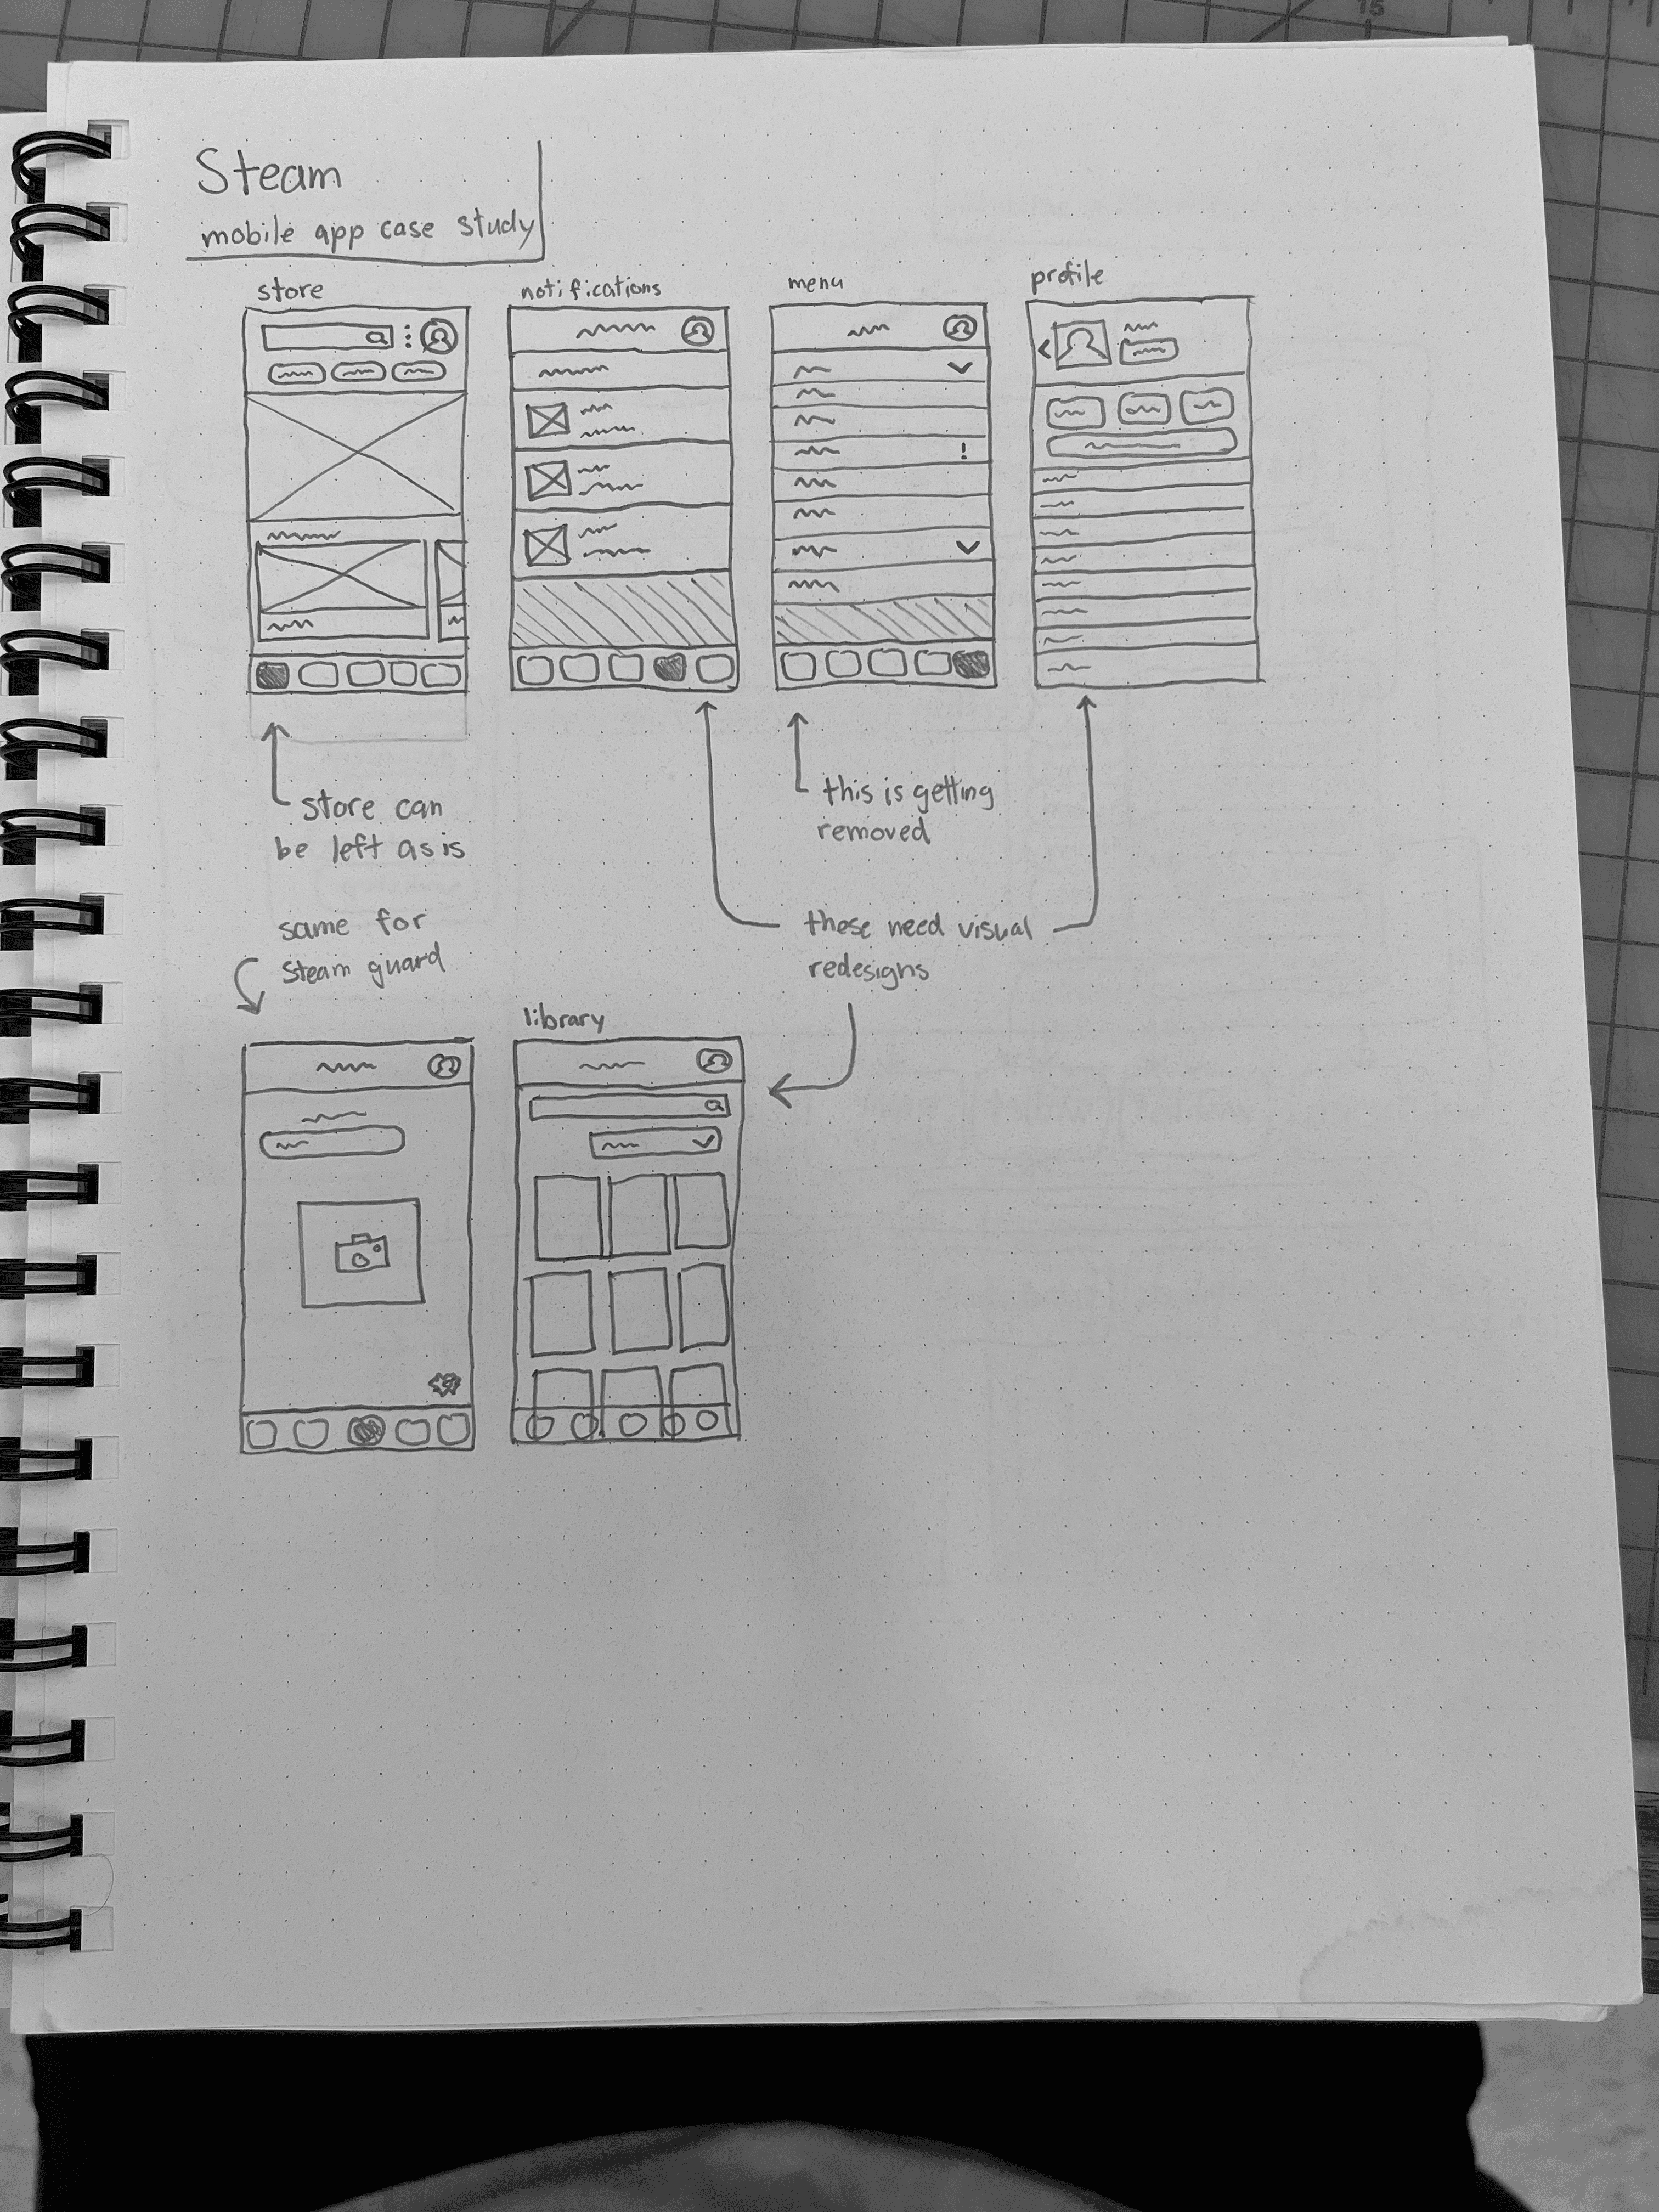 Steam
mobile app case study
store
notifications
menu
profile
store can
be left as is
this is getting
removed
same for
Steam guard
these need visual
redesigns
library
15